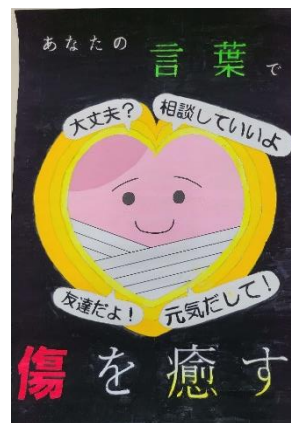 あなたの
言葉で
大丈夫？
相談していいよ
友達だよ！
元気だして！
傷を癒す